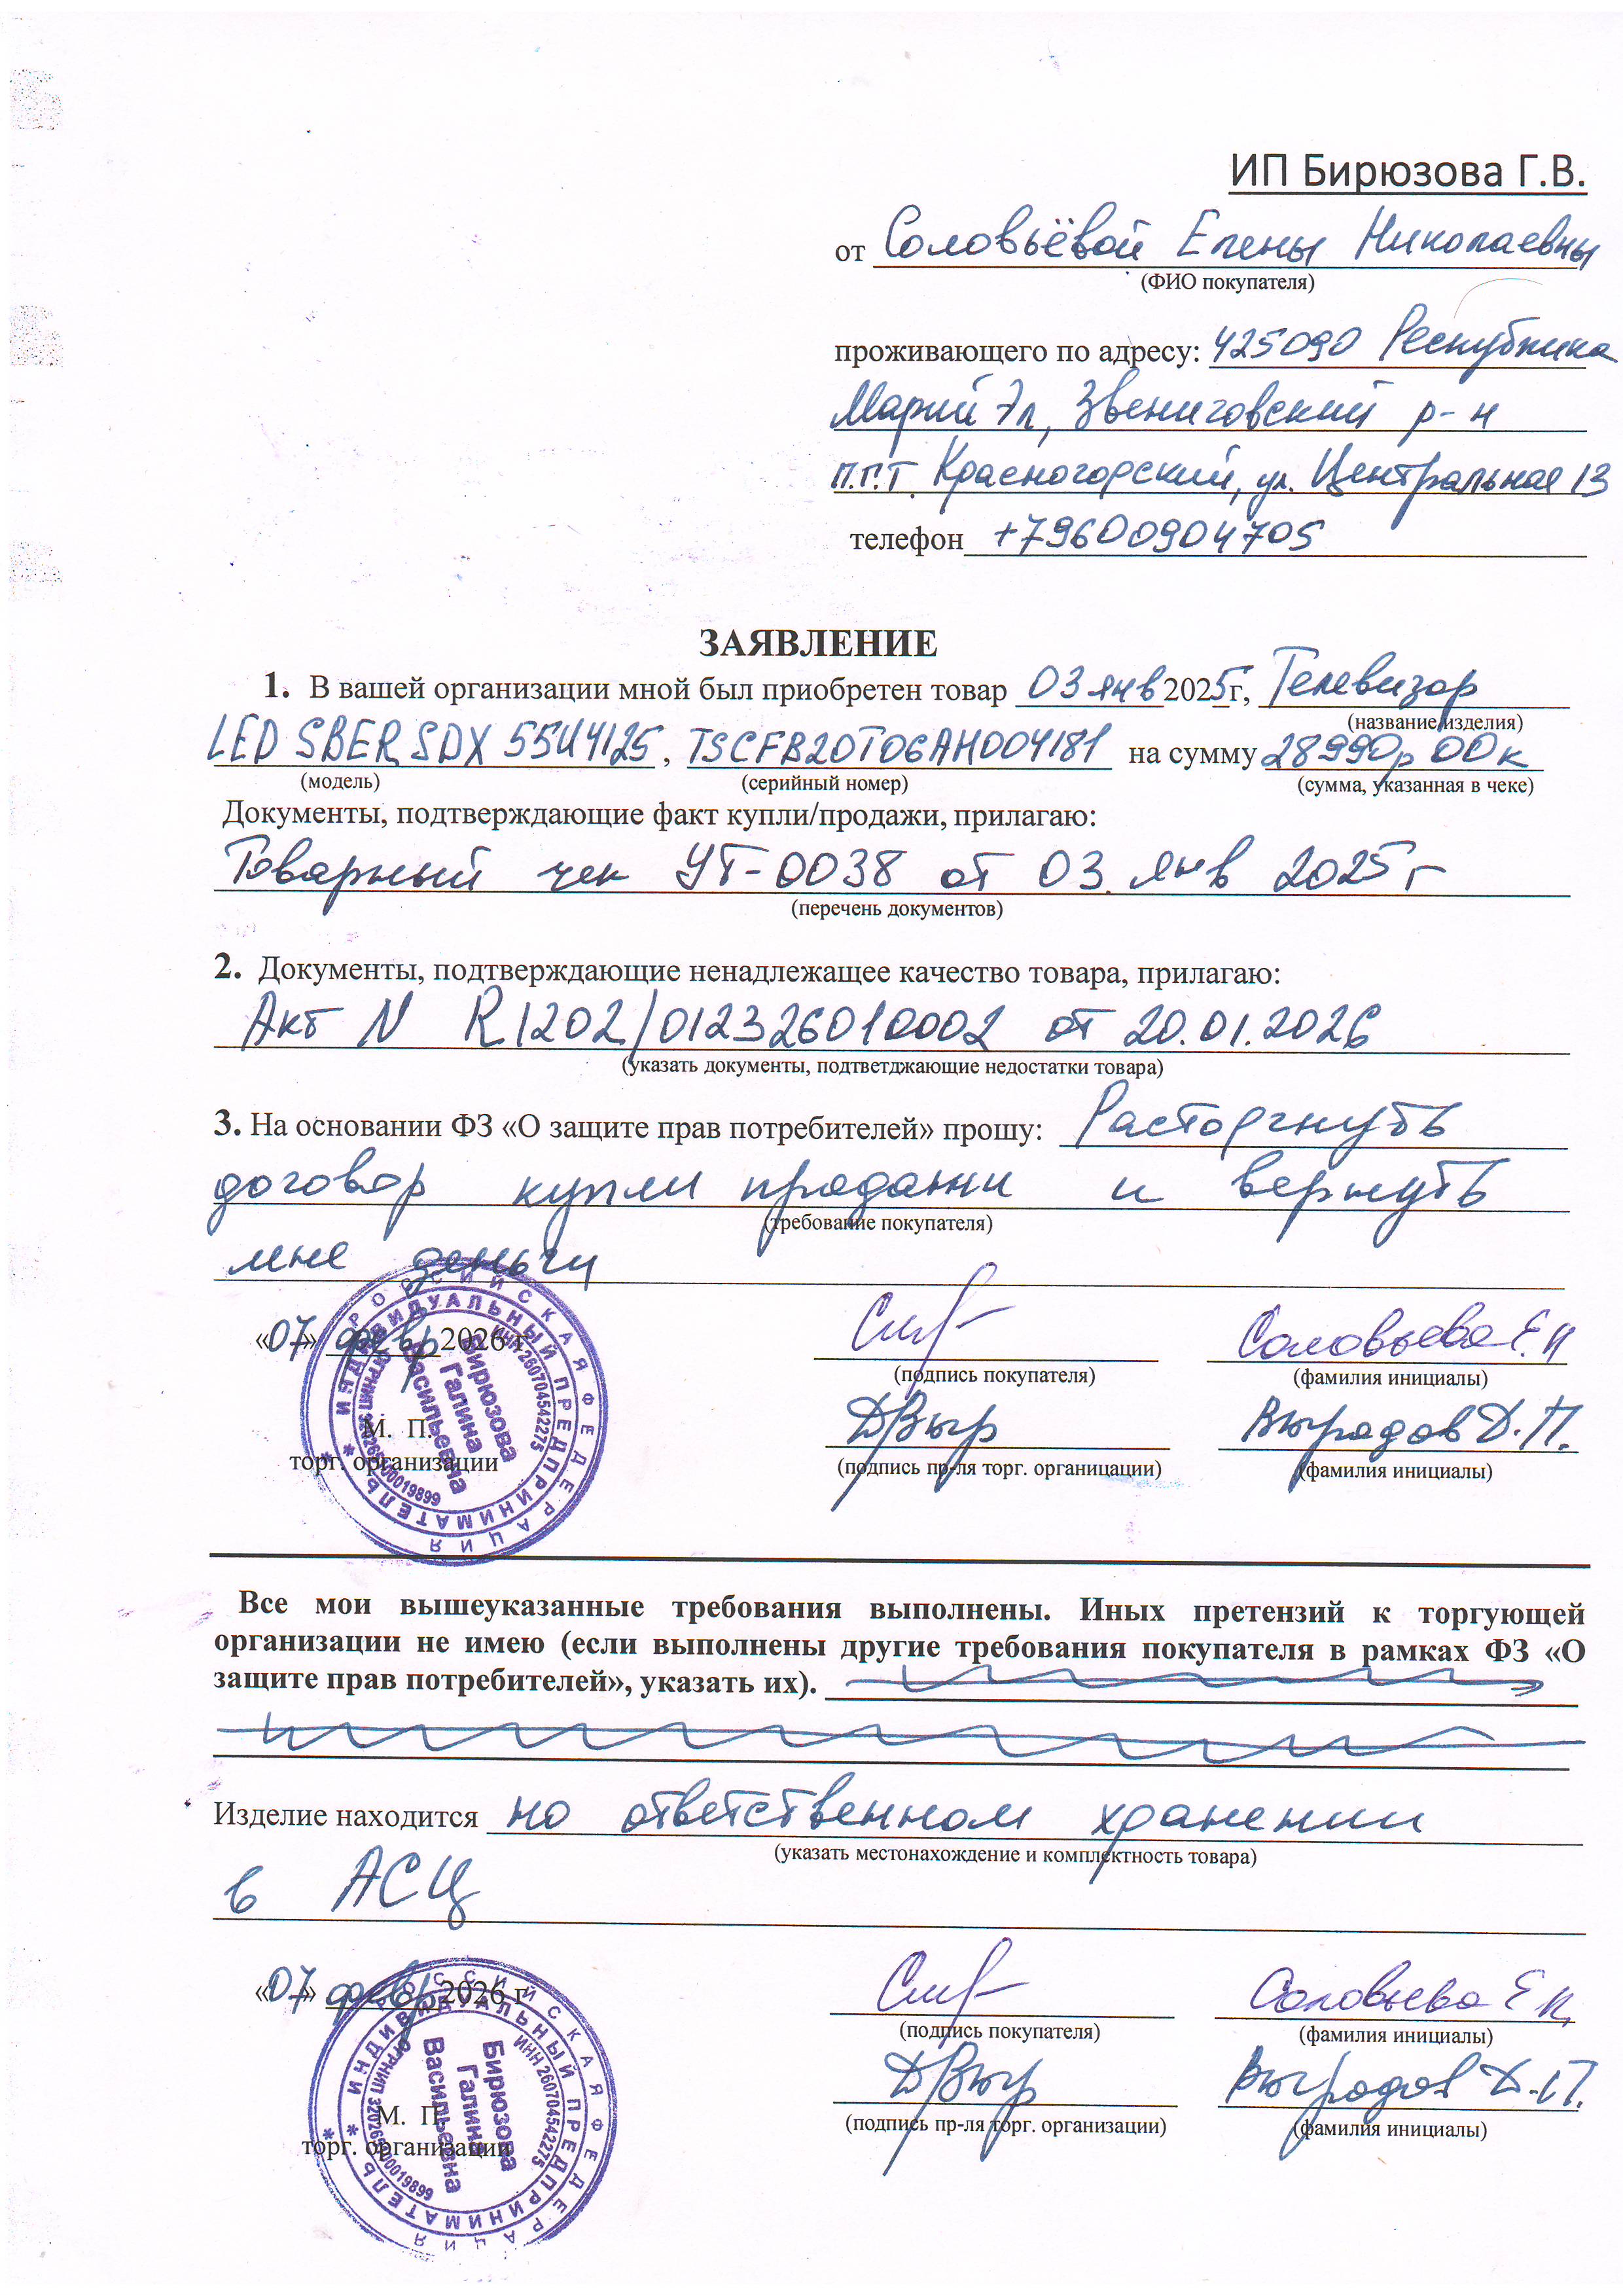 ИП Бирюзова Г.В.
от Соловьёвой Елены Николаевны
(ФИО покупателя)
проживающего по адресу: 425090 Республика
Марий Эл, Звениговский р-н
п.г.т. Красногорский, ул. Центральная 13
телефон +79600904705
ЗАЯВЛЕНИЕ
1. В вашей организации мной был приобретен товар 03 янв 2025г, Телевизор
(название изделия)
LED SBER SDX 55U4125, TSCFB20T06AH004181 на сумму 28990р 00к
(модель) (серийный номер) (сумма, указанная в чеке)
Документы, подтверждающие факт купли/продажи, прилагаю:
Товарный чек УТ-0038 от 03. янв 2025 г
(перечень документов)
2. Документы, подтверждающие ненадлежащее качество товара, прилагаю:
Акт N R1202/012326010002 от 20.01.2026
(указать документы, подтветджающие недостатки товара)
3. На основании ФЗ «О защите прав потребителей» прошу: Расторгнуть
договор купли продажи и вернуть
(требование покупателя)
мне деньги
«07» февр 2026 г Соловьева Е.Н
(подпись покупателя) (фамилия инициалы)
М. П. ДВыр Выродов Д.П.
торг. организации (подпись пр-ля торг. органицации) (фамилия инициалы)
РОССИЙСКАЯ ФЕДЕРАЦИЯ
ИНДИВИДУАЛЬНЫЙ ПРЕДПРИНИМАТЕЛЬ
ИНН 260704542275
Бирюзова
Галина
Васильевна
Все мои вышеуказанные требования выполнены. Иных претензий к торгующей
организации не имею (если выполнены другие требования покупателя в рамках ФЗ «О
защите прав потребителей», указать их).
Изделие находится на ответственном хранении
(указать местонахождение и комплектность товара)
в АСЦ
«07» февр 2026 г Соловьева Е Н,
(подпись покупателя) (фамилия инициалы)
М. П. ДВыр Выродов Д.П.
торг. организации (подпись пр-ля торг. организации) (фамилия инициалы)
РОССИЙСКАЯ ФЕДЕРАЦИЯ
ИНДИВИДУАЛЬНЫЙ ПРЕДПРИНИМАТЕЛЬ
ИНН 260704542275
Бирюзова
Галина
Васильевна